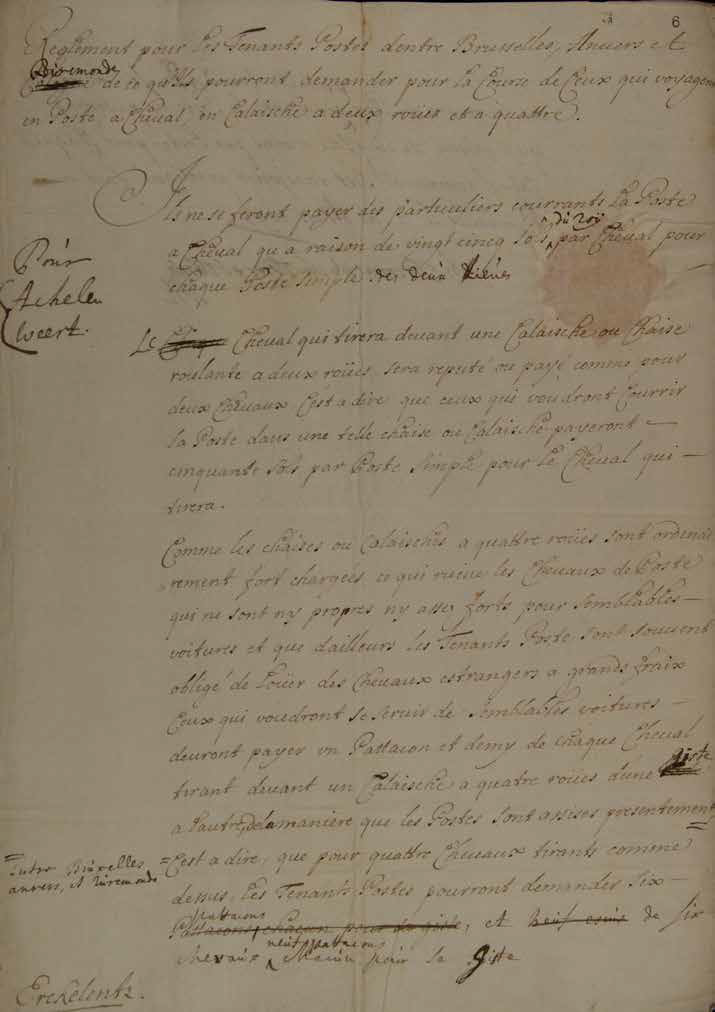 6
Reglement pour les Tenants Postes dentre Brusselles, Anvers et
Ruremonde de ce qu'ils pourront demander pour la Course de Ceux qui voyagent
en Poste a Cheval, en Calaische a deux roües et a quattre.
Ils ne se feront payer des particuliers courrants La Poste
a Cheval qu a raison de vingt cinq sols, du roy par Cheval pour
chaque Poste simple de deux lieues
Pour
Achelen
Weert.
Le Cheval qui tirera devant une Calaische ou Chaise
roulante a deux roües, sera reputé ou payé comme pour
deux Chevaux C'est a dire que ceux qui voudront Courrir
la Poste dans une telle chaise ou Calaische payeront –
cinquante sols par Poste simple pour le Cheval qui –
tirera.
Comme les chaises ou Calaisches a quattre roües sont ordenai
rement fort chargées, ce qui rueine les Chevaux de Poste
qui ne sont ny propres ny asses forts pour semblables –
voitures et que dailleurs les Tenants Poste sont souvent
obligé de Loüer des Chevaux estrangers a grands fraix
Ceux qui voudront se servir de semblables voitures –
devront payer un Pattacon et demy de chaque Cheval
tirant devant un Calaische a quatre roües d'une giste
a l'autre, de la maniere que les Postes sont assises presentement
= Entre Bruxelles
anvers, et Ruremonde
= C'est a dire, que pour quattre Chevaux tirants comme
dessus, les Tenants Postes pourront demander six –
pattacons
Pattacons, chacun pour la giste, et neuf escus de six
chevaux neuf pattacons chacun pour la giste
Erckelents.